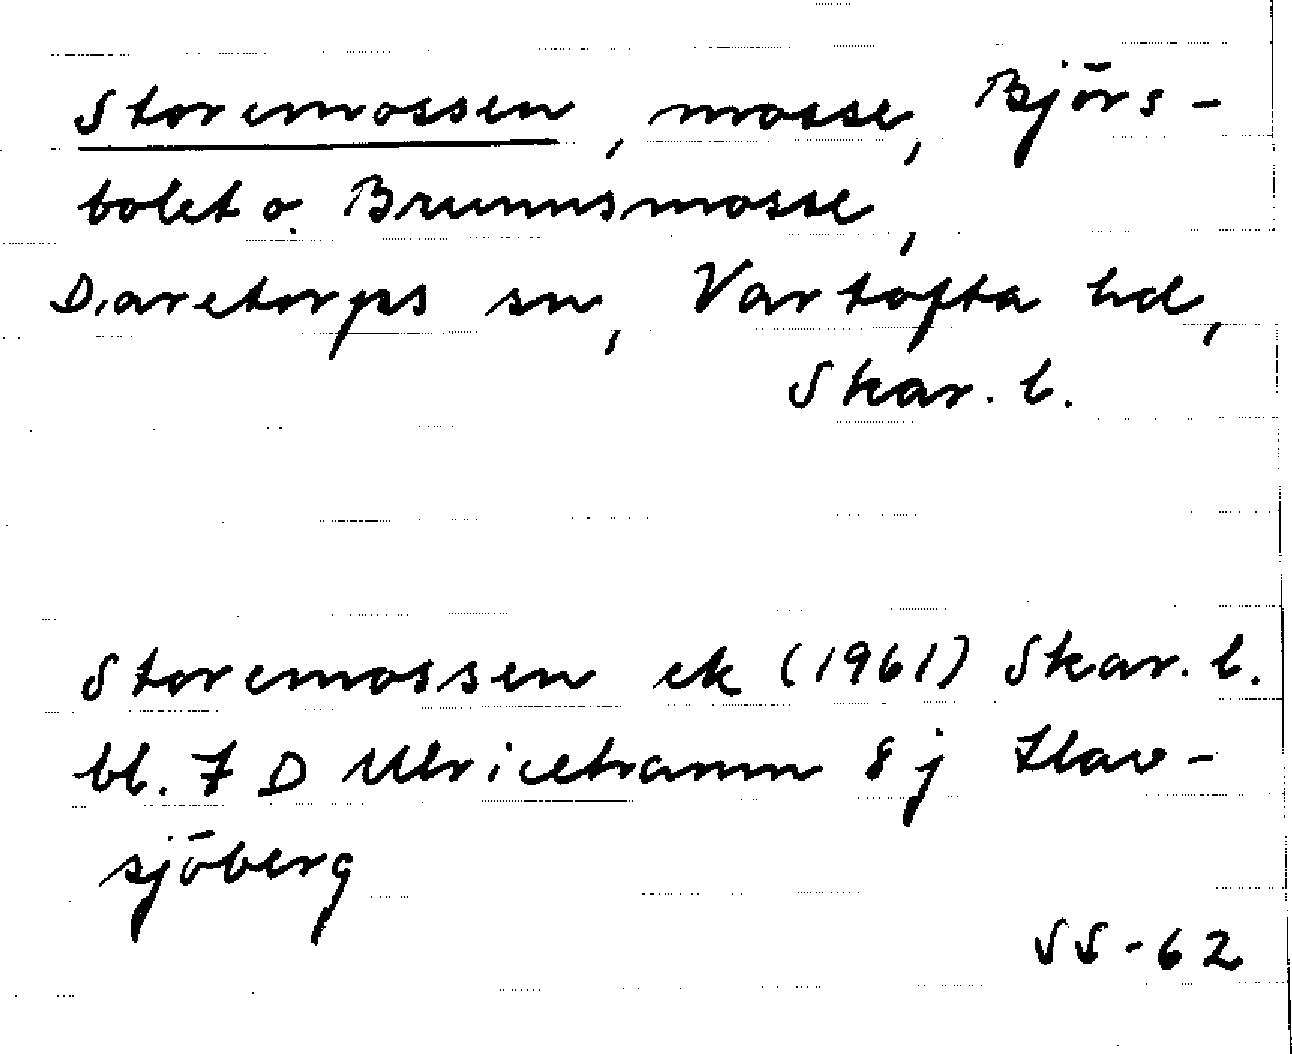 Storemossen, mosse, Björs-
bolet o. Brunnsmosse,
Daretorps sn, Vartofta hd,
Skar. l.
Storemossen ek (1961) Skar. l.
bl. 7 D Ulricehamn 8 j Hav-
sjöberg
SS-62